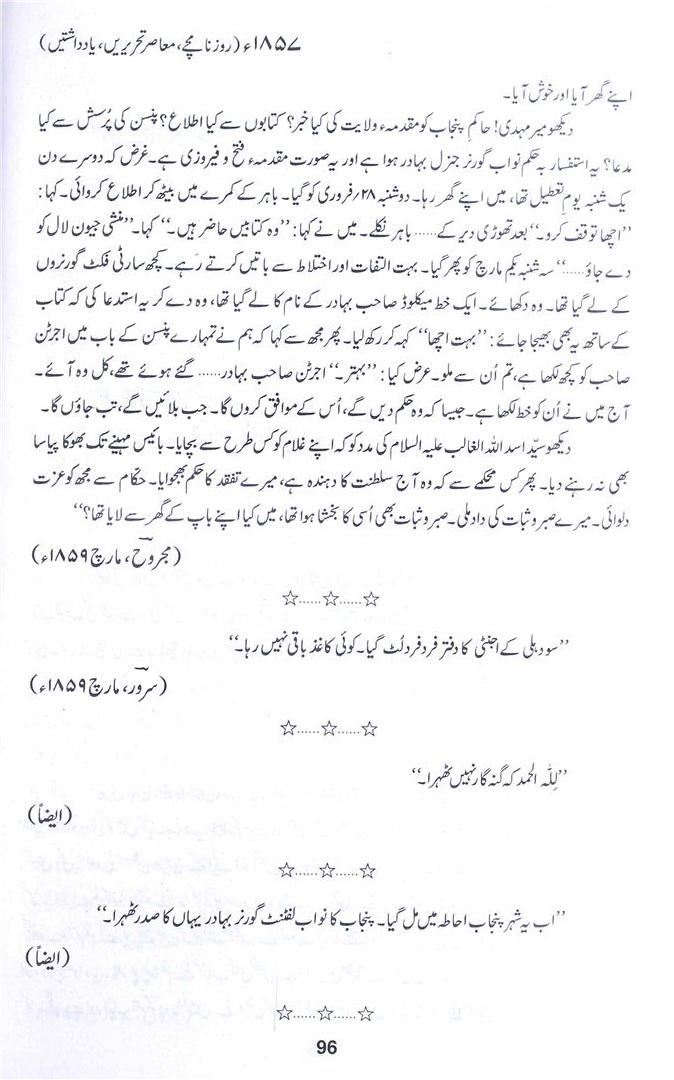 ۱۸۵۷ء (روزنامچے، معاصر تحریریں، یادداشتیں)
اپنے گھر آیا اور خوش آیا۔
دیکھو میر مہدی! حاکمِ پنجاب کو مقدمہء ولایت کی کیا خبر؟ کتابوں سے کیا اطلاع؟ پنسن کی پُرسش سے کیا
مدعا؟ یہ استفسار بہ حکم نواب گورنر جنرل بہادر ہوا ہے اور یہ صورت مقدمہء فتح و فیروزی ہے۔ غرض کہ دوسرے دن
یک شنبہ یومِ تعطیل تھا، میں اپنے گھر رہا۔ دوشنبہ ۲۸؍ فروری کو گیا۔ باہر کے کمرے میں بیٹھ کر اطلاع کروائی۔ کہا:
”اچھا توقف کرو۔“ بعد تھوڑی دیر کے...... باہر نکلے۔ میں نے کہا: ”وہ کتابیں حاضر ہیں۔“ کہا۔ ”منشی جیون لال کو
دے جاؤ......“ سہ شنبہ یکم مارچ کو پھر گیا۔ بہت التفات اور اختلاط سے باتیں کرتے رہے۔ کچھ سارٹی فکٹ گورنروں
کے لے گیا تھا۔ وہ دکھائے۔ ایک خط میکلوڈ صاحب بہادر کے نام کا لے گیا تھا، وہ دے کر یہ استدعا کی کہ کتاب
کے ساتھ یہ بھی بھیجا جائے: ”بہت اچھا“ کہہ کر رکھ لیا۔ پھر مجھ سے کہا کہ ہم نے تمہارے پنسن کے باب میں اجرٹن
صاحب کو کچھ لکھا ہے، تم اُن سے ملو۔ عرض کیا: ”بہتر۔“ اجرٹن صاحب بہادر...... گئے ہوئے تھے، کل وہ آئے۔
آج میں نے اُن کو خط لکھا ہے۔ جیسا کہ وہ حکم دیں گے، اُس کے موافق کروں گا۔ جب بلائیں گے، تب جاؤں گا۔
دیکھو سیّد اسد اللہ الغالب علیہ السلام کی مدد کو کہ اپنے غلام کو کس طرح سے بچایا۔ بائیس مہینے تک بھوکا پیاسا
بھی نہ رہنے دیا۔ پھر کس محکمے سے کہ وہ آج سلطنت کا دہندہ ہے، میرے تفقد کا حکم بھجوایا۔ حکّام سے مجھ کو عزت
دلوائی۔ میرے صبر و ثبات کی داد ملی۔ صبر و ثبات بھی اُسی کا بخشا ہوا تھا، میں کیا اپنے باپ کے گھر سے لایا تھا؟“
(مجروحؔ، مارچ ۱۸۵۹ء)
☆......☆......☆
”سو دہلی کے اجنٹی کا دفتر فرد فرد لُٹ گیا۔ کوئی کاغذ باقی نہیں رہا۔“
(سرورؔ، مارچ ۱۸۵۹ء)
☆......☆......☆
”لِلّٰہ الحمد کہ گنہ گار نہیں ٹھہرا۔“
(ایضاً)
☆......☆......☆
”اب یہ شہر پنجاب احاطہ میں مل گیا۔ پنجاب کا نواب لفٹنٹ گورنر بہادر یہاں کا صدر ٹھہرا۔“
(ایضاً)
☆......☆......☆
96